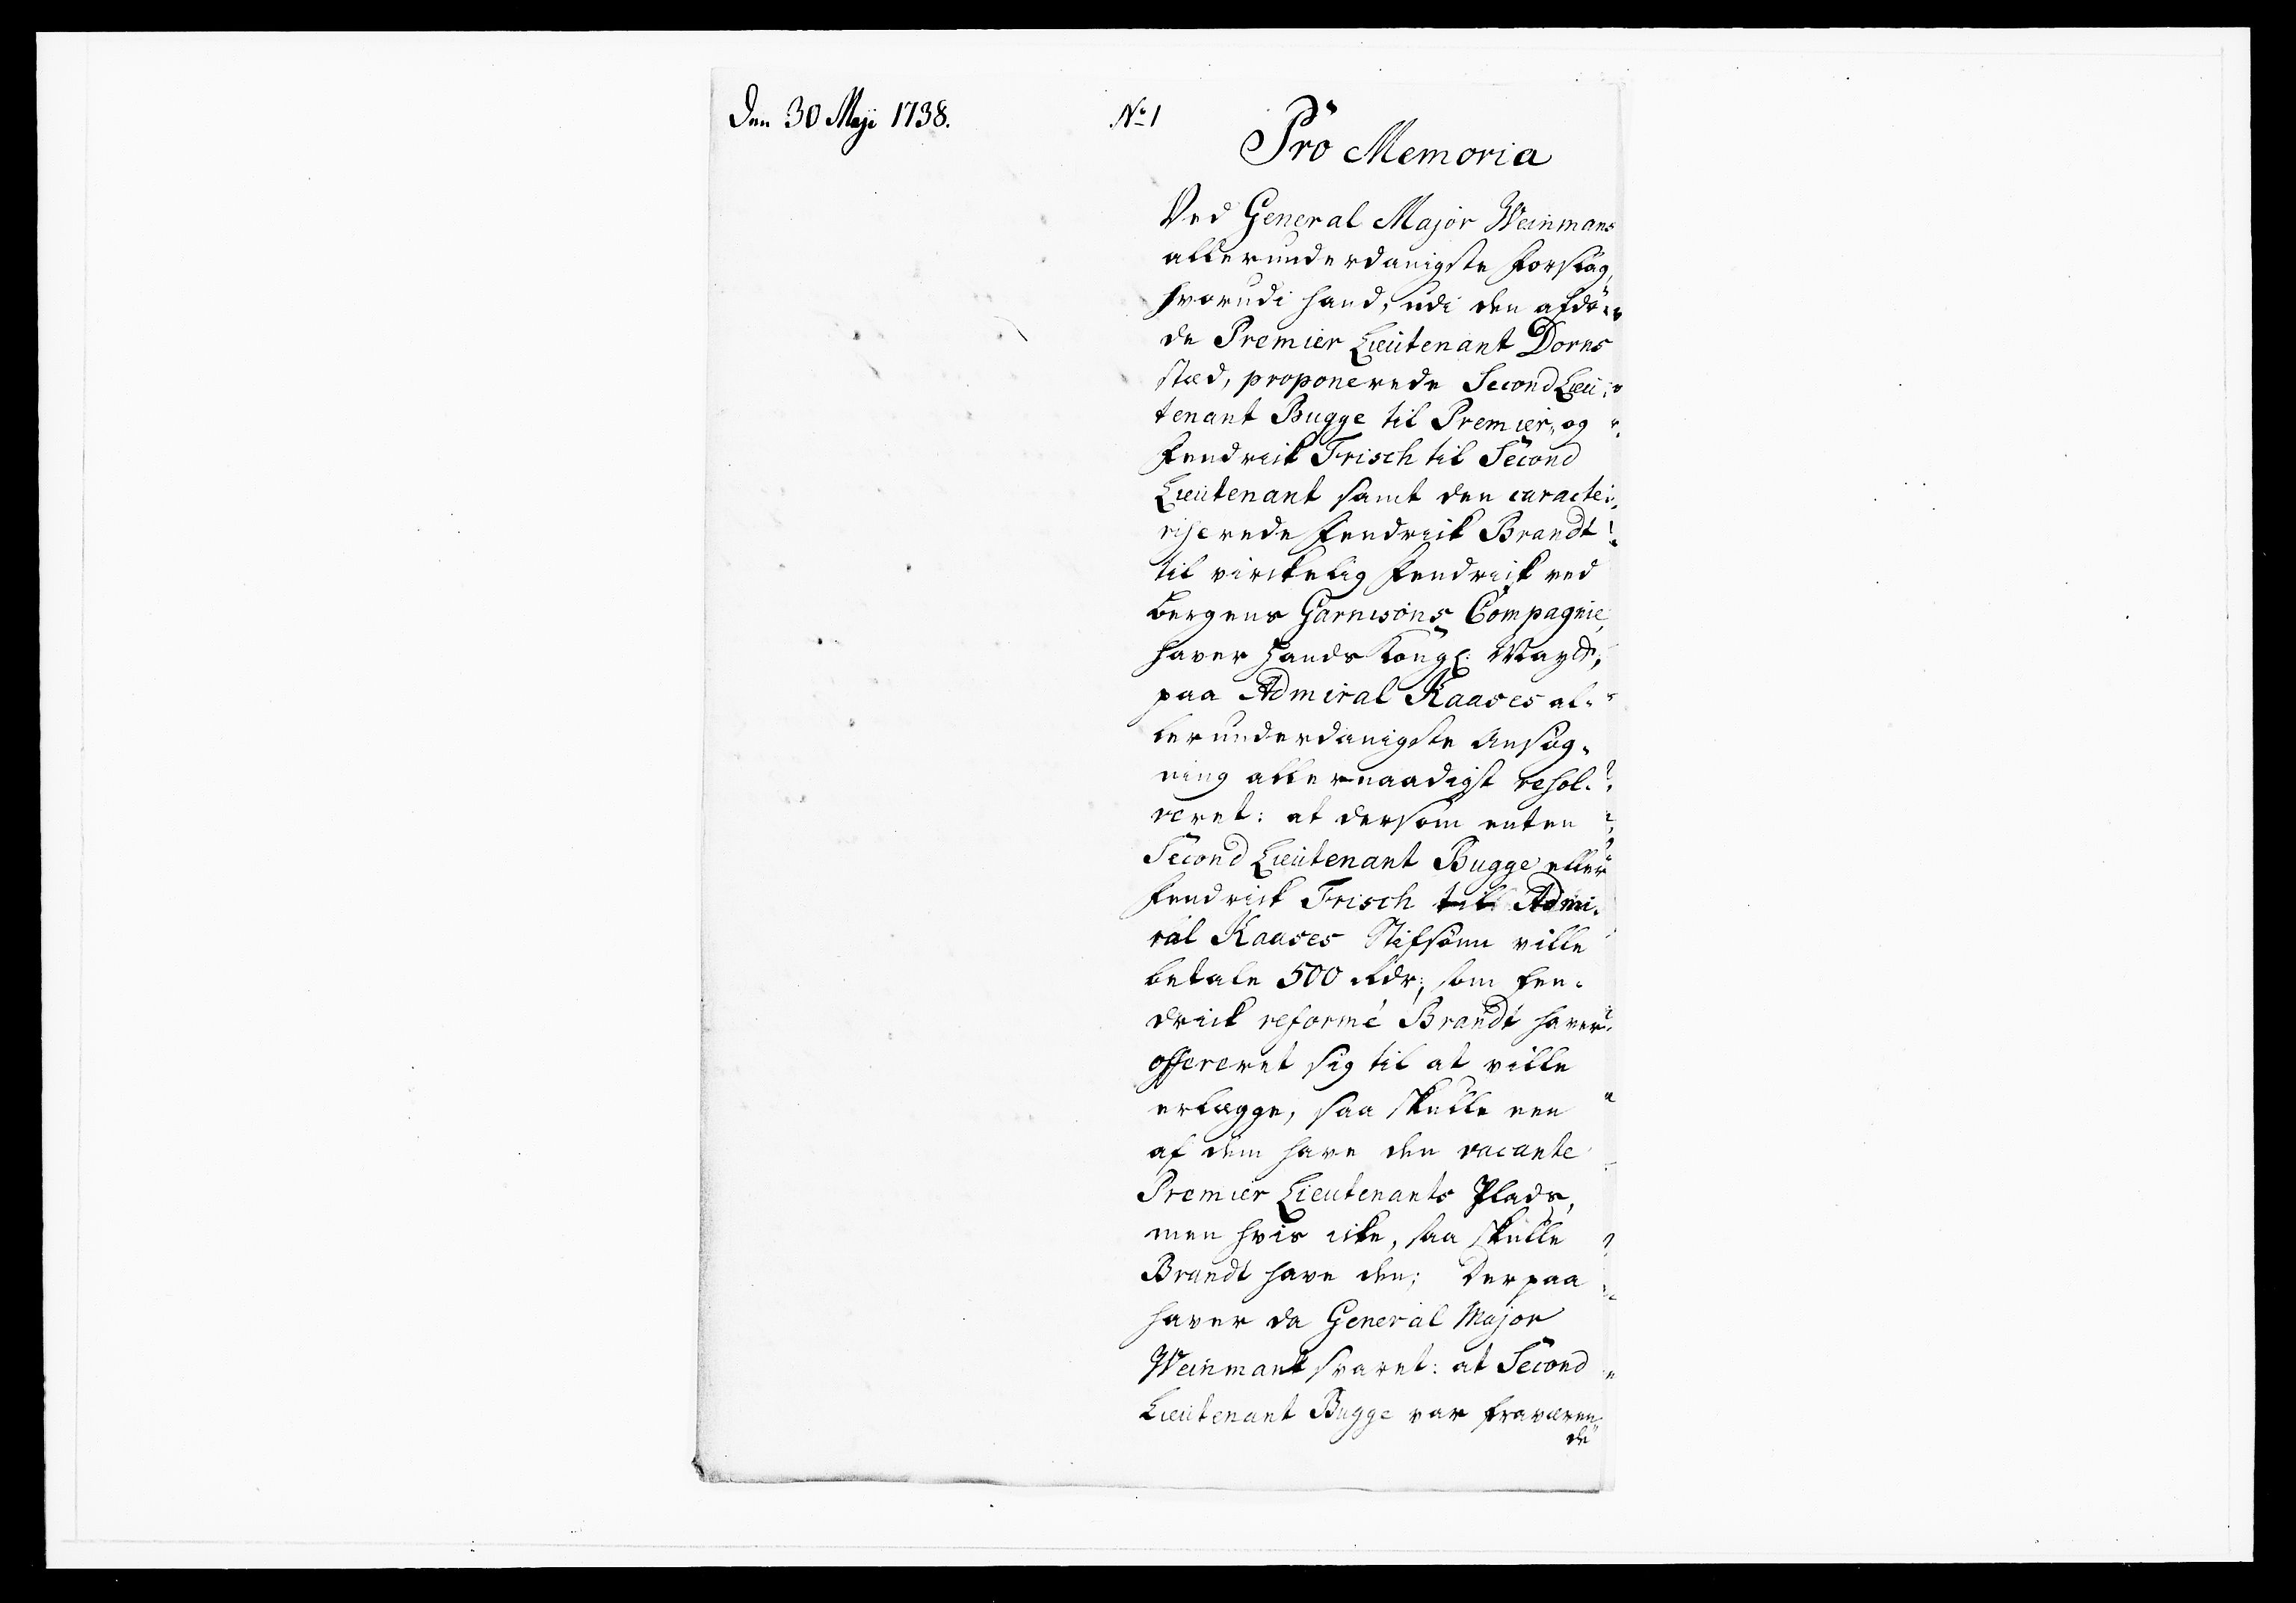 Den 30 Maji 1738.
No 1
Pro Memoria
Ved General Major Weinmans
allerunderdanigste Forslag,
hvorudi hand, udi den afdø-
de Premier Lieutenant Dorns
stæd, proponerede Second Lieu-
tenant Bugge til Premier- og
Fendrick Frisch til Second
Lieutenant samt den caracte-
riserede Fendrick Brandt
til virckelig Fendrick ved
Bergens Garnisons Compagnie,
haver Hands Kongl: Mayst;
paa Admiral Kaases al-
lerunderdanigste Ansøg-
ning allernaadigst resol-
veret: at dersom enten
Second Lieutenant Bugge eller
Fendrick Frisch till Admi-
ral Kaases Stifsønn ville
betale 500 Rdr; som Fen-
drick reformé Brandt haver
offereret sig til at ville
erlægge, saa skulle een
af dem have den vacante
Premier Lieutenants Plads,
men hvis icke, saa skulle
Brandt have den; Derpaa
haver da General Major
Weinmant svaret: at Second
Lieutenant Bugge var fraværen-
de